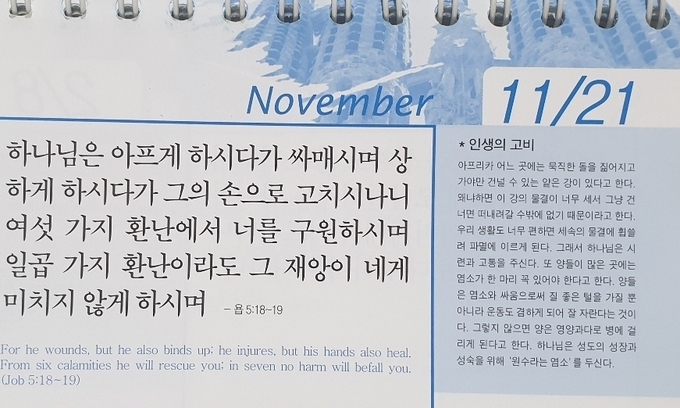 November
11/21
하나님은 아프게 하시다가 싸매시며 상
하게 하시다가 그의 손으로 고치시나니
여섯 가지 환난에서 너를 구원하시며
일곱 가지 환난이라도 그 재앙이 네게
미치지 않게 하시며 – 욥 5:18-19
For he wounds, but he also binds up; he injures, but his hands also heal.
From six calamities he will rescue you; in seven no harm will befall you.
(Job 5:18~19)
* 인생의 고비
아프리카 어느 곳에는 묵직한 돌을 짊어지고
가야만 건널 수 있는 얕은 강이 있다고 한다.
왜냐하면 이 강의 물결이 너무 세서 그냥 건
너면 떠내려갈 수밖에 없기 때문이라고 한다.
우리 생활도 너무 편하면 세속의 물결에 휩쓸
려 파멸에 이르게 된다. 그래서 하나님은 시
련과 고통을 주신다. 또 양들이 많은 곳에는
염소가 한 마리 꼭 있어야 한다고 한다. 양들
은 염소와 싸움으로써 질 좋은 털을 가질 뿐
아니라 운동도 겸하게 되어 잘 자란다는 것이
다. 그렇지 않으면 양은 영양과다로 병에 걸
리게 된다고 한다. 하나님은 성도의 성장과
성숙을 위해 '원수라는 염소'를 두신다.